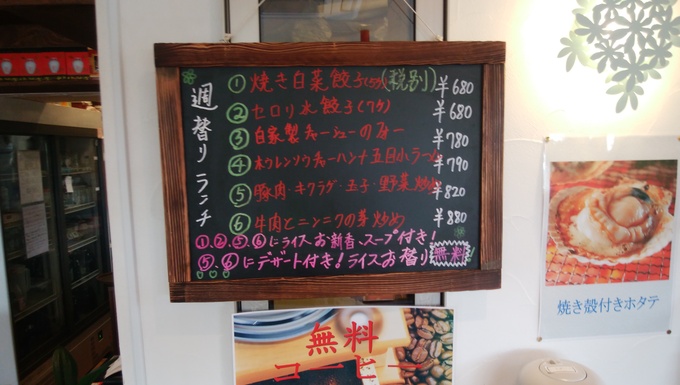 週替りランチ
① 焼き白菜餃子(5ケ)(税別) ¥680
② セロリ水餃子(7ケ) ¥680
③ 自家製チャーシューの ¥780
④ ホウレンソウチャーハン+五目小ラーメン ¥790
⑤ 豚肉・キクラゲ・玉子・野菜炒め ¥820
⑥ 牛肉とニンニクの芽炒め ¥880
①,②,③,⑥にライス お新香、スープ付き!
⑤,⑥にデザート付き!ライスお替り無料!
焼き殻付きホタテ
無料
コーヒー